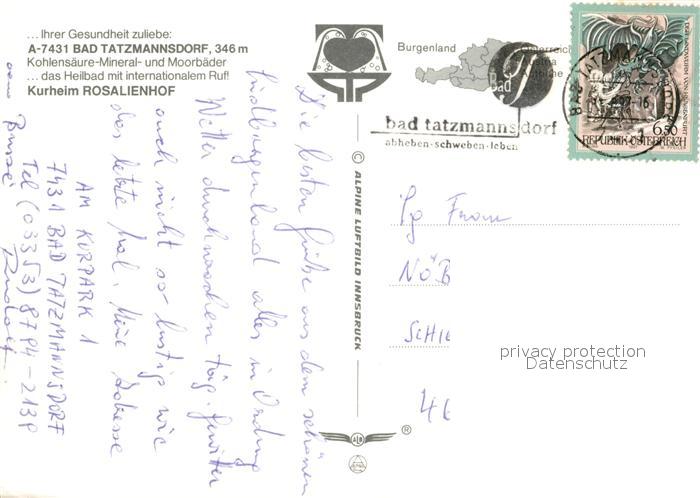 ... Ihrer Gesundheit zuliebe:
A-7431 BAD TATZMANNSDORF, 346 m
Kohlensäure-Mineral- und Moorbäder
... das Heilbad mit internationalem Ruf!
Kurheim ROSALIENHOF
Burgenland
Österreich
Austria
Bad
bad tatzmannsdorf
abheben·schweben·leben
6.50
REPUBLIK ÖSTERREICH
© ALPINE LUFTBILD INNSBRUCK
®
Die besten Grüße aus dem schönen
Südburgenland alles in Ordnung
Wetter durchwachsen täg. Gewitter
auch nicht so lustig wie
das letzte mal. Meine Adresse
AM KURPARK 1
7431 BAD TATZMANNSDORF
Tel (03353) 8784-2138
Rudolf
NÖB
SCHIE
privacy protection
Datenschutz